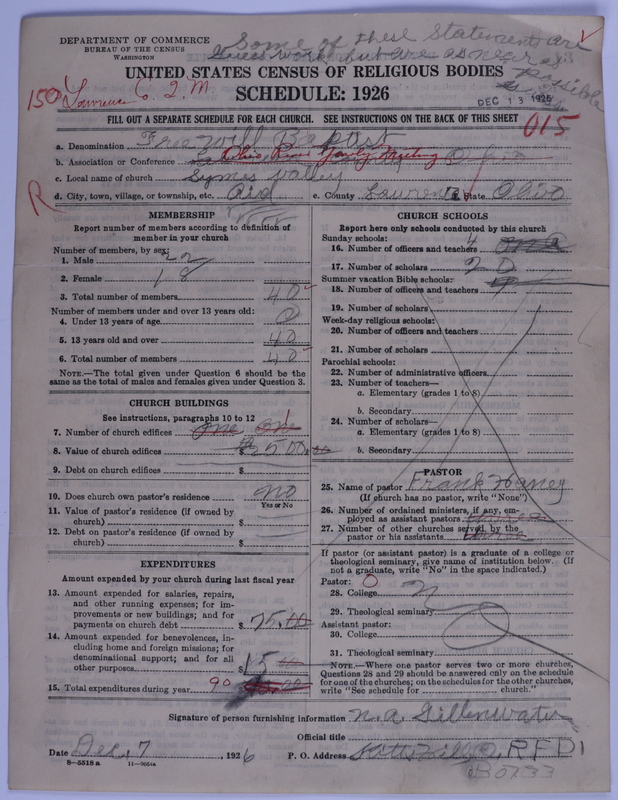 DEPARTMENT OF COMMERCE
BUREAU OF THE CENSUS
WASHINGTON
Some of these Statements are
Guess work but are as near as
possible
UNITED STATES CENSUS OF RELIGIOUS BODIES
SCHEDULE: 1926
DEC 13 1926
150 Lawrence C. Q. M
FILL OUT A SEPARATE SCHEDULE FOR EACH CHURCH. SEE INSTRUCTIONS ON THE BACK OF THIS SHEET
015
a. Denomination Free Will Baptist
b. Association or Conference Ohio River Yearly Meeting
c. Local name of church Symes Valley
R
d. City, town, village, or township, etc. Aid e. County Lawrence State Ohio
MEMBERSHIP
Report number of members according to definition of
member in your church
Number of members, by sex:
1. Male 22
2. Female 18
3. Total number of members 40
Number of members under and over 13 years old:
4. Under 13 years of age 0
5. 13 years old and over 40
6. Total number of members 40
NOTE.—The total given under Question 6 should be the
same as the total of males and females given under Question 3.
CHURCH BUILDINGS
See instructions, paragraphs 10 to 12
7. Number of church edifices one one 1
8. Value of church edifices $ 2500.00
9. Debt on church edifices $
10. Does church own pastor's residence no
Yes or No
11. Value of pastor's residence (if owned by
church) $
12. Debt on pastor's residence (if owned by
church) $
EXPENDITURES
Amount expended by your church during last fiscal year
13. Amount expended for salaries, repairs,
and other running expenses; for im-
provements or new buildings; and for
payments on church debt $ 75.00
14. Amount expended for benevolences, in-
cluding home and foreign missions; for
denominational support; and for all
other purposes $ 15 00
15. Total expenditures during year 90
CHURCH SCHOOLS
Report here only schools conducted by this church
Sunday schools:
16. Number of officers and teachers 4
17. Number of scholars 20
Summer vacation Bible schools:
18. Number of officers and teachers
19. Number of scholars
Week-day religious schools:
20. Number of officers and teachers
21. Number of scholars
Parochial schools:
22. Number of administrative officers
23. Number of teachers—
a. Elementary (grades 1 to 8)
b. Secondary
24. Number of scholars—
a. Elementary (grades 1 to 8)
b. Secondary
PASTOR
25. Name of pastor Frank Haney
(If church has no pastor, write "None")
26. Number of ordained ministers, if any, em-
ployed as assistant pastors
27. Number of other churches served by the
pastor or his assistants
If pastor (or assistant pastor) is a graduate of a college or
theological seminary, give name of institution below. (If
not a graduate, write "No" in the space indicated.)
Pastor: 0
28. College
29. Theological seminary
Assistant pastor:
30. College
31. Theological seminary
NOTE.—Where one pastor serves two or more churches,
Questions 28 and 29 should be answered only on the schedule
for one of the churches; on the schedules for the other churches,
write "See schedule for church."
Signature of person furnishing information N. A. Gillenwater
Official title
Date Dec, 7, 1926 P. O. Address RFD1
8—5518 a 11—9054a